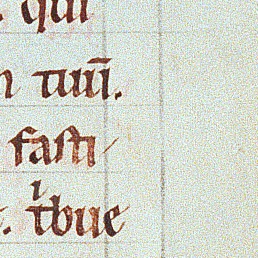 . qui
n tuū.
fasti
. tͥbue